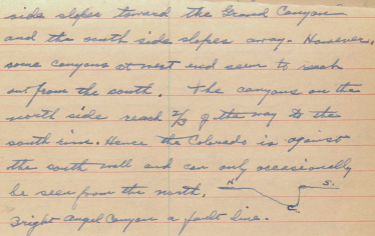 side slopes toward the Grand Canyon
and the north side slopes away. However,
some canyons at west end seem to reach
out from the south. The canyons on the
north side reach 2/3 of the way to the
south rim. Hence the Colorado is against
the south wall and can only occasionally
be seen from the north. N S.
C.
Bright Angel Canyon a fault line.